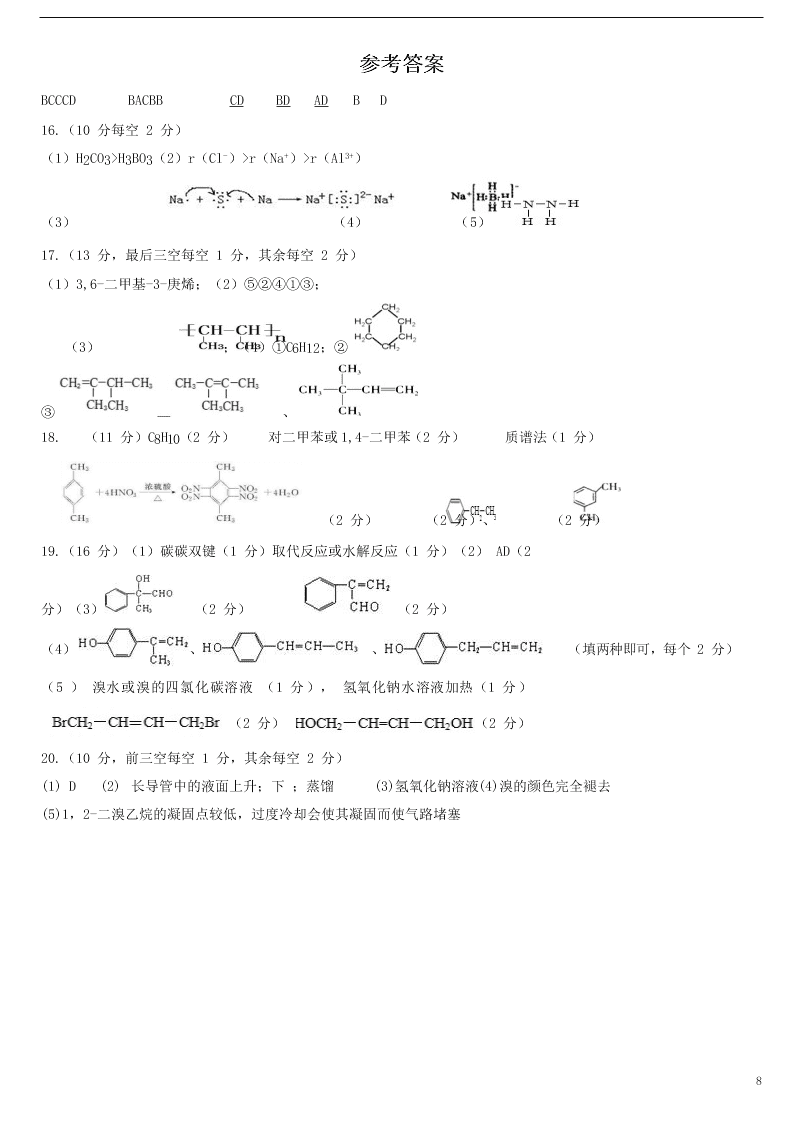 参考答案
BCCCD BACBB CD BD AD B D
16.（10 分每空 2 分）
（1）H2CO3>H3BO3（2）r（Cl-）>r（Na+）>r（Al3+）
Na· + ·S· + ·Na ⟶ Na+[:S:]2- Na+
Na+[H:B:H]- H H
H-N-N-H
H H
（3） （4） （5）
17.（13 分，最后三空每空 1 分，其余每空 2 分）
（1）3,6-二甲基-3-庚烯；（2）⑤②④①③；
（3） -[CH-CH]-n CH3 CH3 ；（4）①C6H12；② CH2 H2C CH2 H2C CH2 CH2
③ CH2=C-CH-CH3 CH3CH3 CH3-C=C-CH3 CH3CH3 、 CH3 CH3-C-CH=CH2 CH3
18. （11 分）C8H10（2 分） 对二甲苯或1,4-二甲苯（2 分） 质谱法（1 分）
CH3 CH3 +4HNO3 浓硫酸 △ CH3 O2N NO2 O2N NO2 CH3 +4H2O （2 分） CH2-CH3 （2 分）、 CH3 CH3 （2 分）
19.（16 分）（1）碳碳双键（1 分）取代反应或水解反应（1 分）（2） AD（2
分）（3） OH C-CHO CH3 （2 分） C=CH2 CHO （2 分）
（4） HO C=CH2 CH3 、HO CH=CH-CH3 、HO CH2-CH=CH2 （填两种即可，每个 2 分）
（5 ） 溴水或溴的四氯化碳溶液 （1 分）， 氢氧化钠水溶液加热（1 分）
BrCH2-CH=CH-CH2Br （2 分） HOCH2-CH=CH-CH2OH（2 分）
20.（10 分，前三空每空 1 分，其余每空 2 分）
(1) D (2) 长导管中的液面上升；下 ；蒸馏 (3)氢氧化钠溶液(4)溴的颜色完全褪去
(5)1，2-二溴乙烷的凝固点较低，过度冷却会使其凝固而使气路堵塞
8